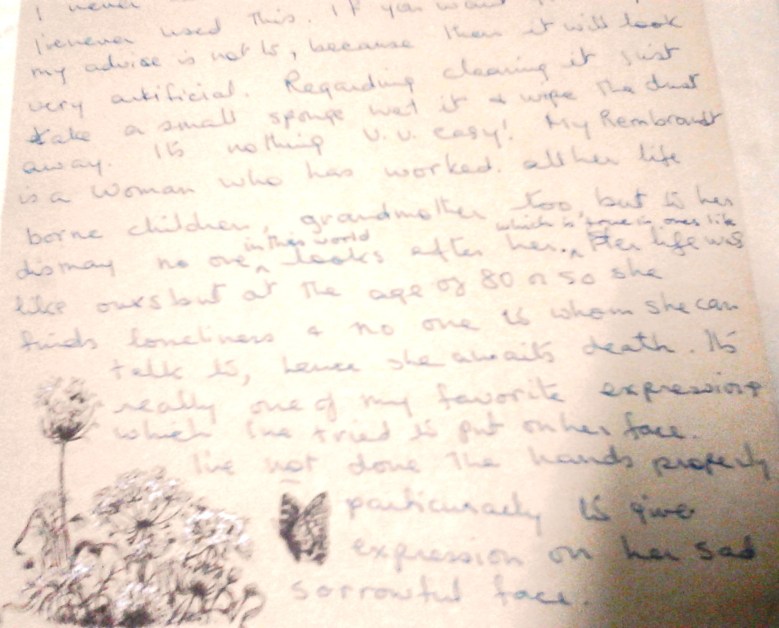 I never
I never used this. If you want
my advise is not to, because then it will look
very artificial. Regarding cleaning it just
take a small sponge wet it & wipe the dust
away. It's nothing v.v. easy! My Rembrandt
is a woman who has worked all her life
borne children, grandmother too but to her
dismay no one in this world looks after her. which is in ones life Her life was
like ours but at the age of 80 or so she
finds loneliness & no one to whom she can
talk to, hence she awaits death. It's
really one of my favorite expressions
which I've tried to put on her face.
I've not done the hands properly
particuraely to give
expression on her sad
sorrowful face.